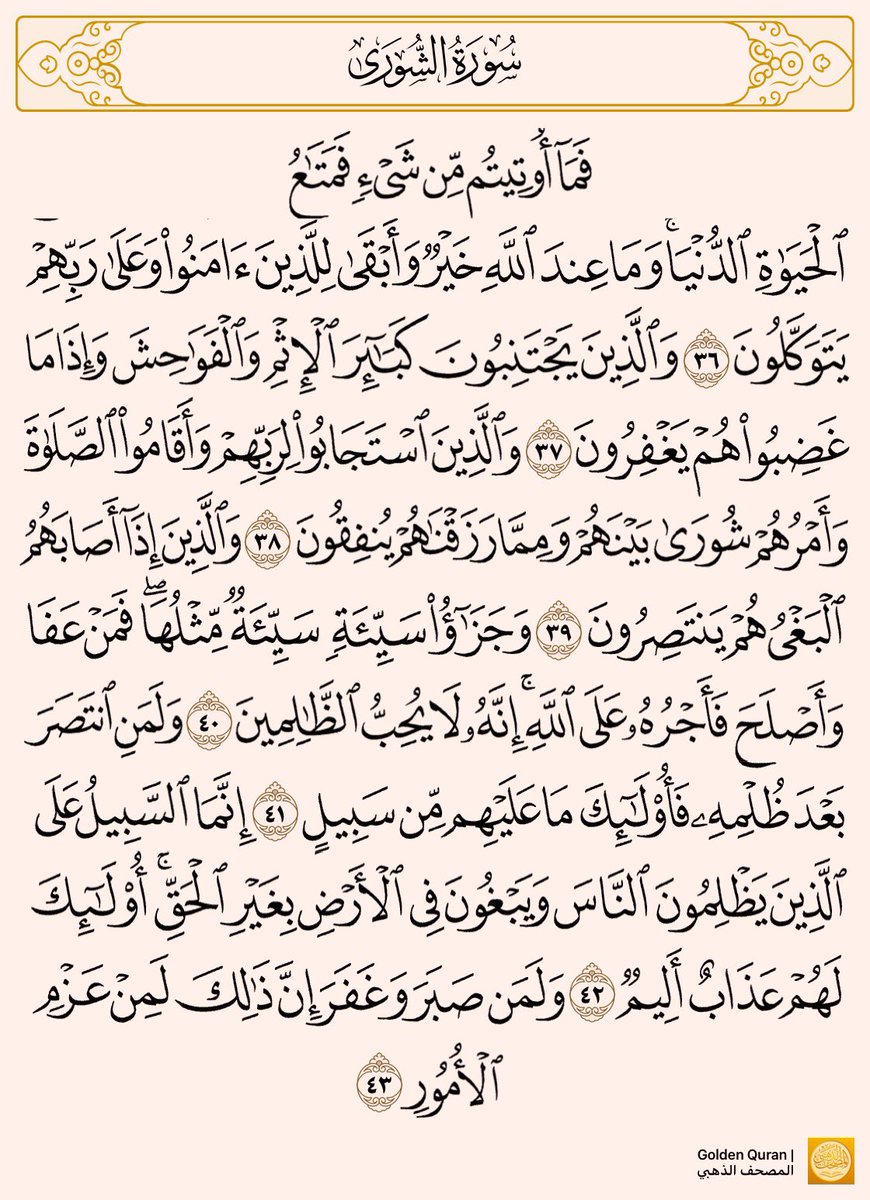 سُورَةُ الشُّورَىٰ
فَمَآ أُوتِيتُم مِّن شَىْءٍ فَمَتَٰعُ
ٱلْحَيَوٰةِ ٱلدُّنْيَا ۖ وَمَا عِندَ ٱللَّهِ خَيْرٌ وَأَبْقَىٰ لِلَّذِينَ ءَامَنُوا۟ وَعَلَىٰ رَبِّهِمْ
يَتَوَكَّلُونَ ٣٦ وَٱلَّذِينَ يَجْتَنِبُونَ كَبَٰٓئِرَ ٱلْإِثْمِ وَٱلْفَوَٰحِشَ وَإِذَا مَا
غَضِبُوا۟ هُمْ يَغْفِرُونَ ٣٧ وَٱلَّذِينَ ٱسْتَجَابُوا۟ لِرَبِّهِمْ وَأَقَامُوا۟ ٱلصَّلَوٰةَ
وَأَمْرُهُمْ شُورَىٰ بَيْنَهُمْ وَمِمَّا رَزَقْنَٰهُمْ يُنفِقُونَ ٣٨ وَٱلَّذِينَ إِذَآ أَصَابَهُمُ
ٱلْبَغْىُ هُمْ يَنتَصِرُونَ ٣٩ وَجَزَٰٓؤُا۟ سَيِّئَةٍ سَيِّئَةٌ مِّثْلُهَا ۖ فَمَنْ عَفَا
وَأَصْلَحَ فَأَجْرُهُۥ عَلَى ٱللَّهِ ۚ إِنَّهُۥ لَا يُحِبُّ ٱلظَّٰلِمِينَ ٤٠ وَلَمَنِ ٱنتَصَرَ
بَعْدَ ظُلْمِهِۦ فَأُو۟لَٰٓئِكَ مَا عَلَيْهِم مِّن سَبِيلٍ ٤١ إِنَّمَا ٱلسَّبِيلُ عَلَى
ٱلَّذِينَ يَظْلِمُونَ ٱلنَّاسَ وَيَبْغُونَ فِى ٱلْأَرْضِ بِغَيْرِ ٱلْحَقِّ ۚ أُو۟لَٰٓئِكَ
لَهُمْ عَذَابٌ أَلِيمٌ ٤٢ وَلَمَن صَبَرَ وَغَفَرَ إِنَّ ذَٰلِكَ لَمِنْ عَزْمِ
ٱلْأُمُورِ ٤٣
Golden Quran |
المصحف الذهبي